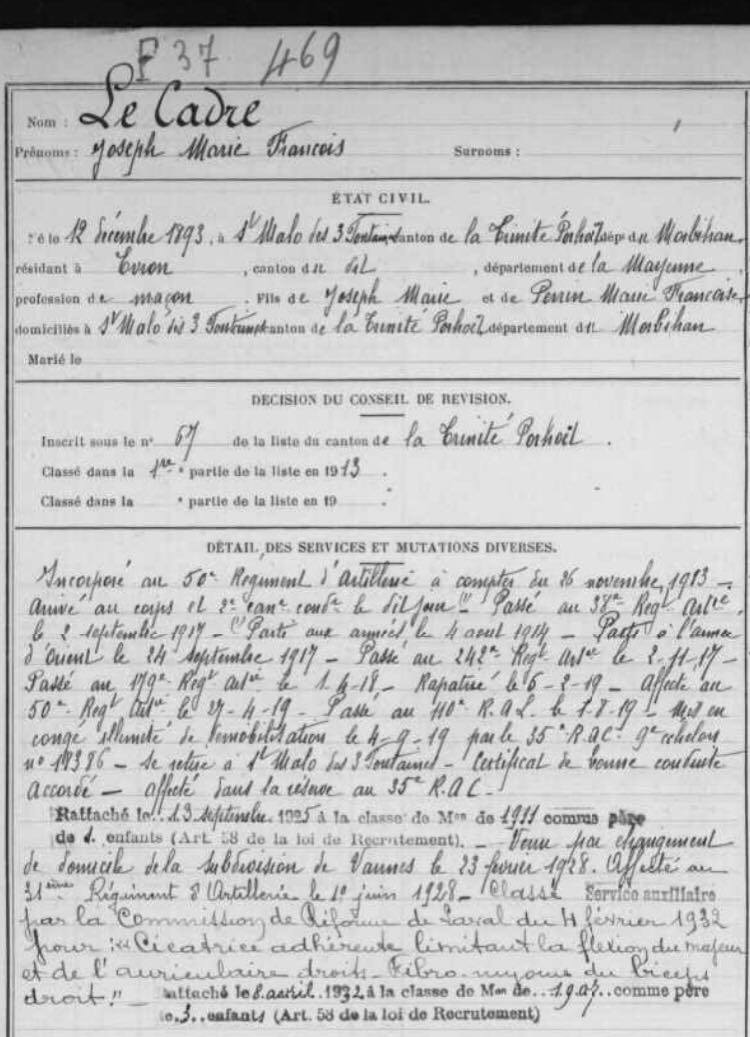 F 37 469
Nom : Le Cadre
Prénoms : Joseph Marie François Surnoms :
ÉTAT CIVIL.
Né le 12 décembre 1893, à St Malo des 3 Fontaines canton de la Trinité Porhoët dép. du Morbihan,
résidant à Evron , canton du dit , département de la Mayenne
profession de maçon . Fils de Joseph Marie et de Perrin Marie Françoise,
domiciliés à St Malo des 3 Fontaines canton de la Trinité Porhoët département du Morbihan
Marié le
DÉCISION DU CONSEIL DE REVISION.
Inscrit sous le n° 67 de la liste du canton de la Trinité Porhoët .
Classé dans la 1re partie de la liste en 1913 .
Classé dans la e partie de la liste en 19 .
DÉTAIL DES SERVICES ET MUTATIONS DIVERSES.
Incorporé au 50e Régiment d'Artillerie à compter du 26 novembre 1913 —
Arrivé au corps et 2e can. cond. le dit jour (1) Passé au 38e Regt Artie
le 2 septembre 1917 — (1) Parti aux armées le 4 aout 1914 — Parti à l'armée
d'Orient le 24 septembre 1917 — Passé au 242e Regt Artie le 2-11-17 —
Passé au 179e Regt Artie le 1-4-18, — Rapatrié le 6-2-19 — Affecté au
50e Regt Artie le 27-4-19 — Passé au 110e R.A.L. le 1-8-19 — Mis en
congé illimité de démobilisation le 4-9-19 par le 35e R.A.C. 9e echelon
n° — se retire à St Malo des 3 Fontaines — Certificat de bonne conduite
accordé — affecté dans la réserve au 35e R.A.C.
Rattaché le 13 septembre 1925 à la classe de Mon de 1911 comme père
de 1. enfants (Art. 58 de la loi de Recrutement). — Venu par changement
de domicile de la subdivision de Vannes le 23 février 1928. Affecté au
31ème Régiment d'Artillerie le 1er juin 1928 — Classé Service auxiliaire
par la Commission de Réforme de Laval du 4 février 1932
pour : "Cicatrice adhérente limitant la flexion du majeur
et de l'auriculaire droits — Fibro-myome du biceps
droit." — Rattaché le 8 avril 1932 à la classe de Mon de 1907 comme père
de 3 enfants (Art. 58 de la loi de Recrutement)